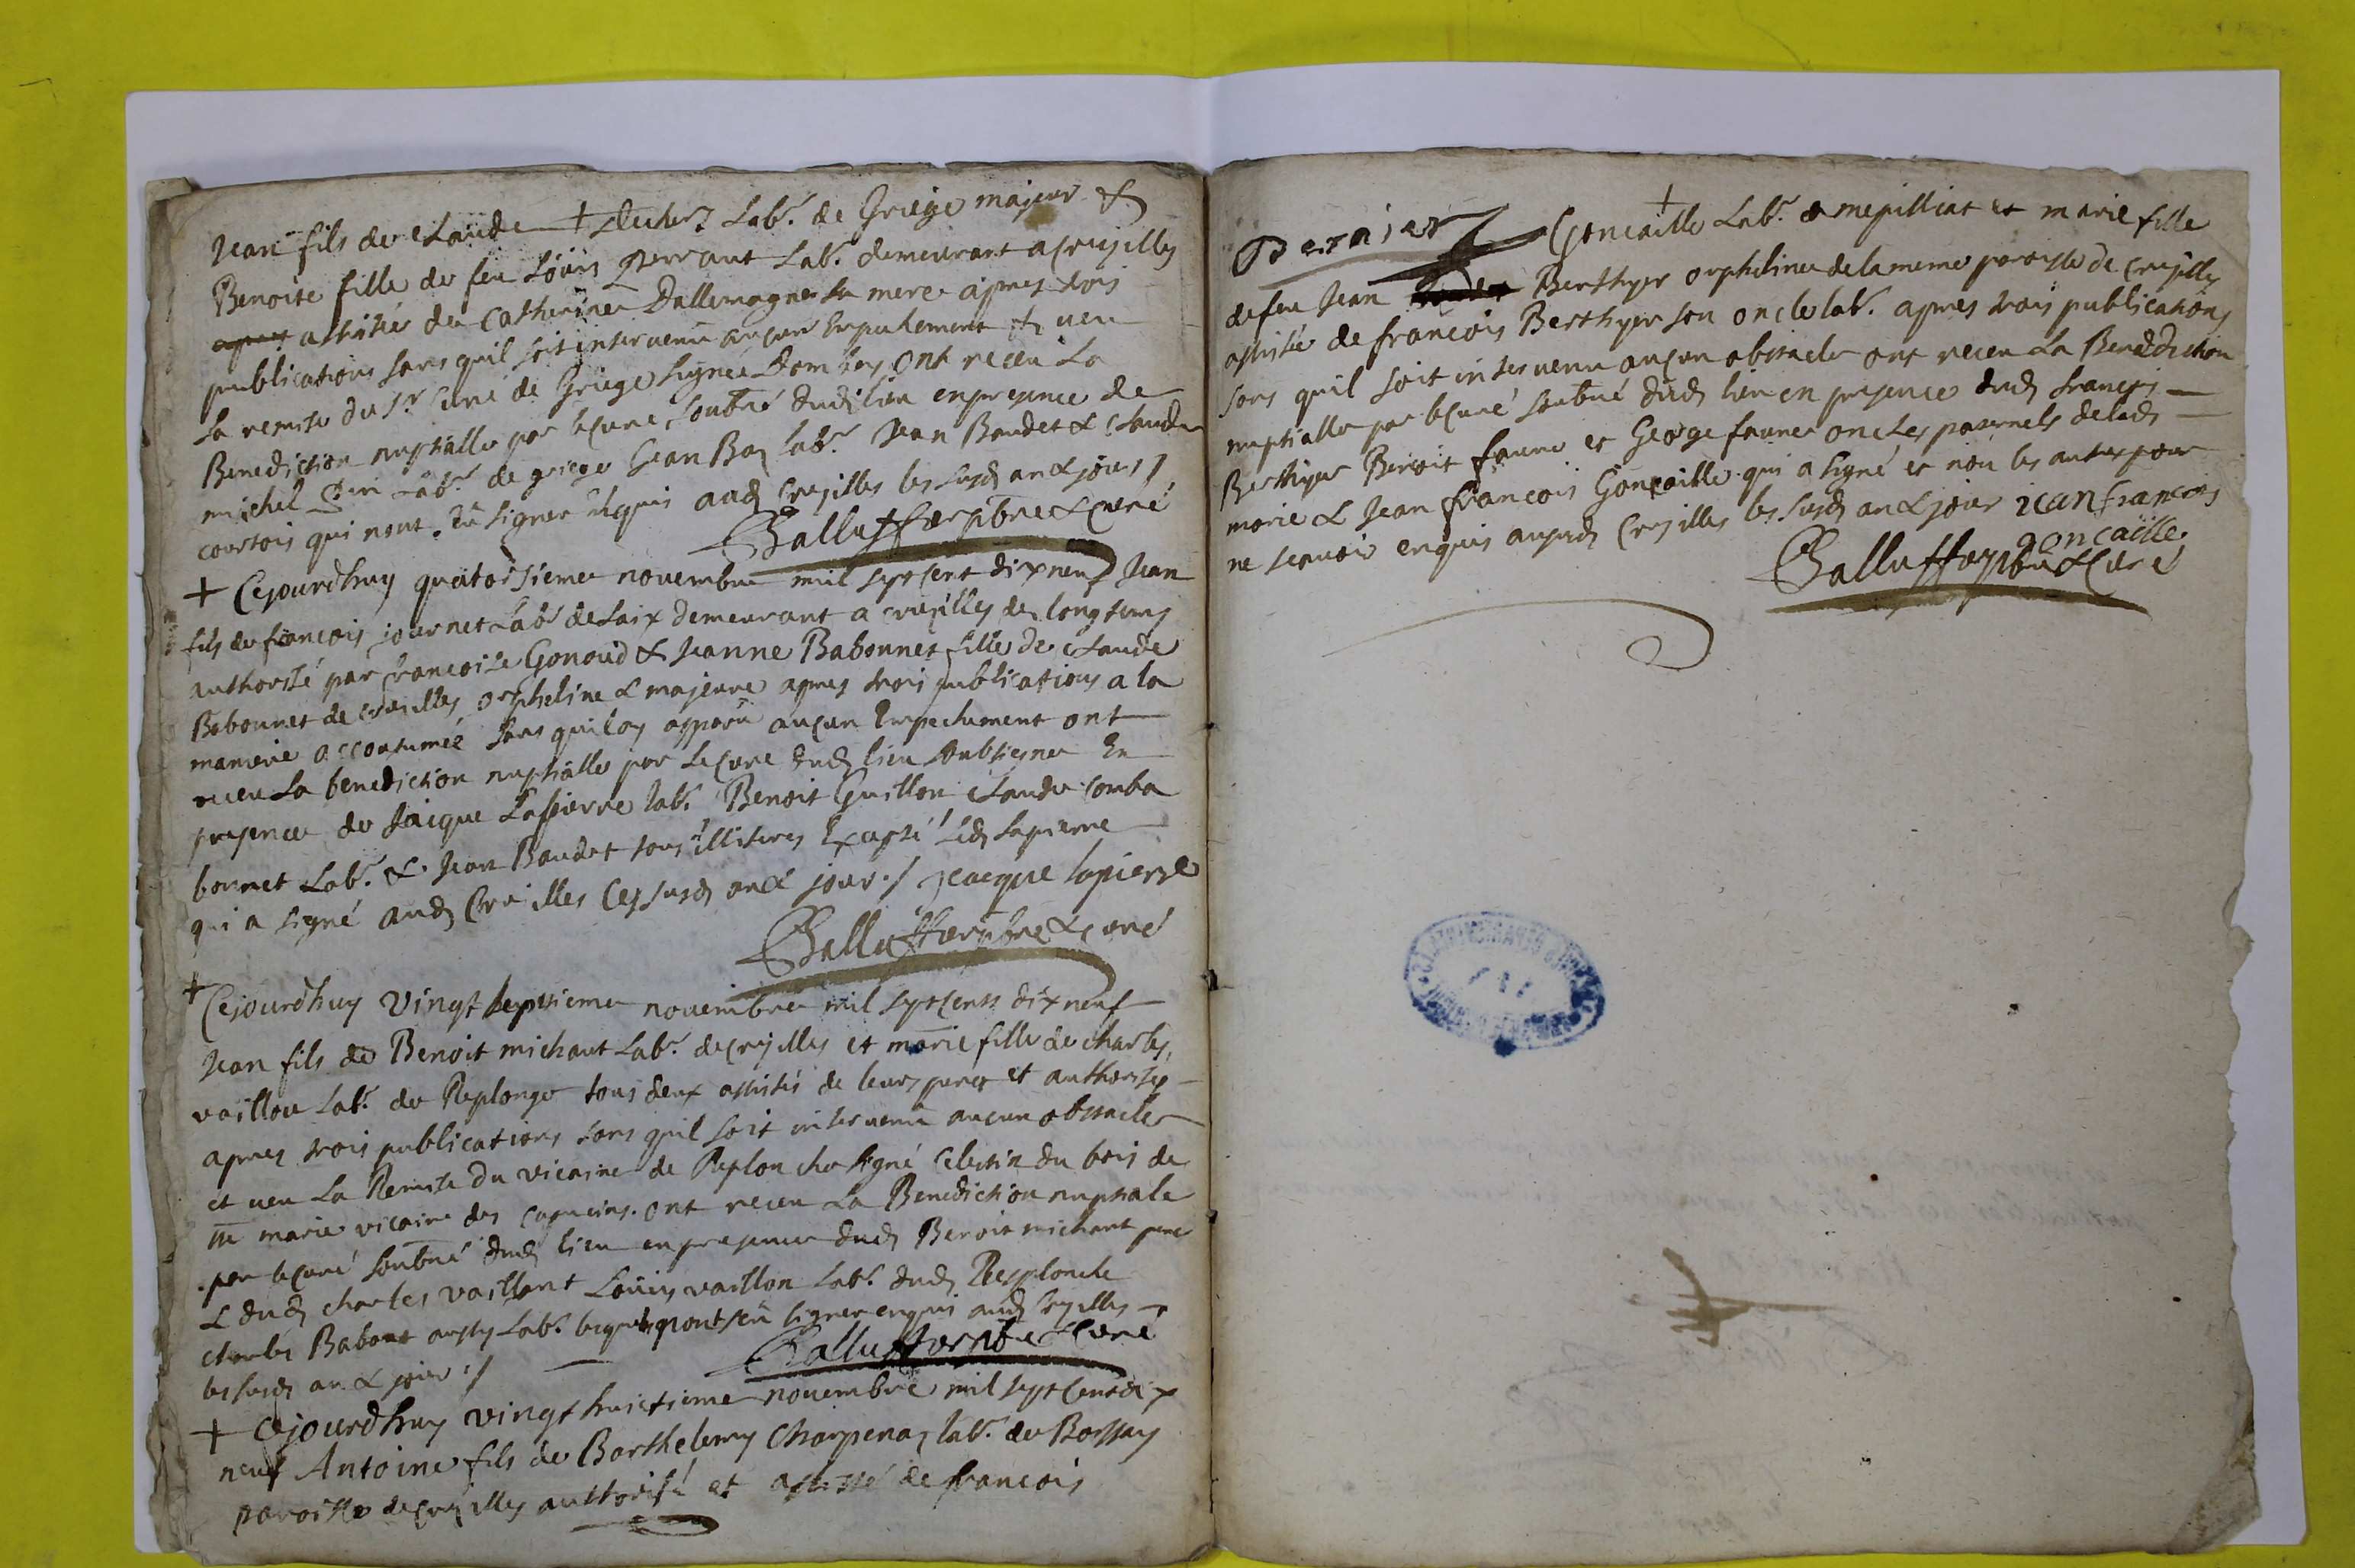 Jean fils de Claude + Lab.r de Griege majeur &
Benoite fille de feu Loüis perraut Lab.r demeurant a crusilles
assistée de Catherine Dallemagne sa mere apres trois
publications sans quil soit intervenu aucun Empechement & veu
La remise du S.r Curé de Griege signée ont receu La
Benediction nuptialle par le Curé soubné dud lieu en presence de
michel Lab.r de griege Jean Lab.r Jean Baudet & Claude
courtois qui nont sçu signer Enquis aud Crusilles les susd an & jour ./
Balluffier pbre & Curé
+ Cejourdhuy quatorsieme novembre mil sept cent dix neuf Jean
fils de francois journet Lab.r de Laix demeurant a crusilles de longtems
authorisé par francoise Gonoud & Jeanne Babonnet fille de Claude
Babonnet de crusilles orpheline & majeure apres trois publications a la
maniere accoutumée sans quil ay apparu aucun Empechement ont
receu La benediction nuptialle par Le Curé dud lieu soubsigné En
presence de Jacque Lapierre lab.r Benoit Guillon Claude comba
bonnet Lab.r & Jean Baudet tous illiteres Excepté Led Lapierre
qui a signé aud Crusilles Les susd an & jour ./ jeacque lapierre
Balluffier pbre & curé
+ Cejourdhuy vingt septsieme novembre mil sept cents dix neuf
Jean fils de Benoit michaut Lab.r de crusilles et marie fille de charles
vaillon Lab.r de Replonge tous deux assistés de leurs peres et authorisés
apres trois publications sans quil soit intervenu aucun obstacle
et veu La Remise du vicaire de Replonche signé Celestin du bois de
marie vicaire des capucins. ont receu La Benediction nuptiale
par le Curé soubné dud lieu en presence dud Benoit michaut pere
& dud charles vaillant Loüis vaillon Lab.r dud Resplonche
charles Babonet aussy Lab.r lesquels nont sçu signer enquis aud Crusilles
les susd an & jour ./ Balluffier pbre & Curé
+ Cejourdhuy vingt huictieme novembre mil sept cents dix
neuf Antoine fils de Barthelemy Charpenay lab.r de Bossay
paroisse de Crusilles authorisé et assisté de francois
Bernier + Goncaille Lab.r de mepilliat et marie fille
de feu Jean Berthyer orpheline de la meme paroisse de crusilles
assistée de francois Berthyer son oncle lab.r apres trois publications
sans quil soit intervenu aucun obstacle ont receu La Benediction
nuptialle par le Curé soubné dud lieu en presence dud francois
Berthyer Benoit faure et George faure oncles paternels de lad
marie & Jean francois Goncaille qui a signé et non les autres pour
ne scavoir enquis ausd Crusilles les susd an & jour jean francois
goncaille
Balluffier pbre & Curé